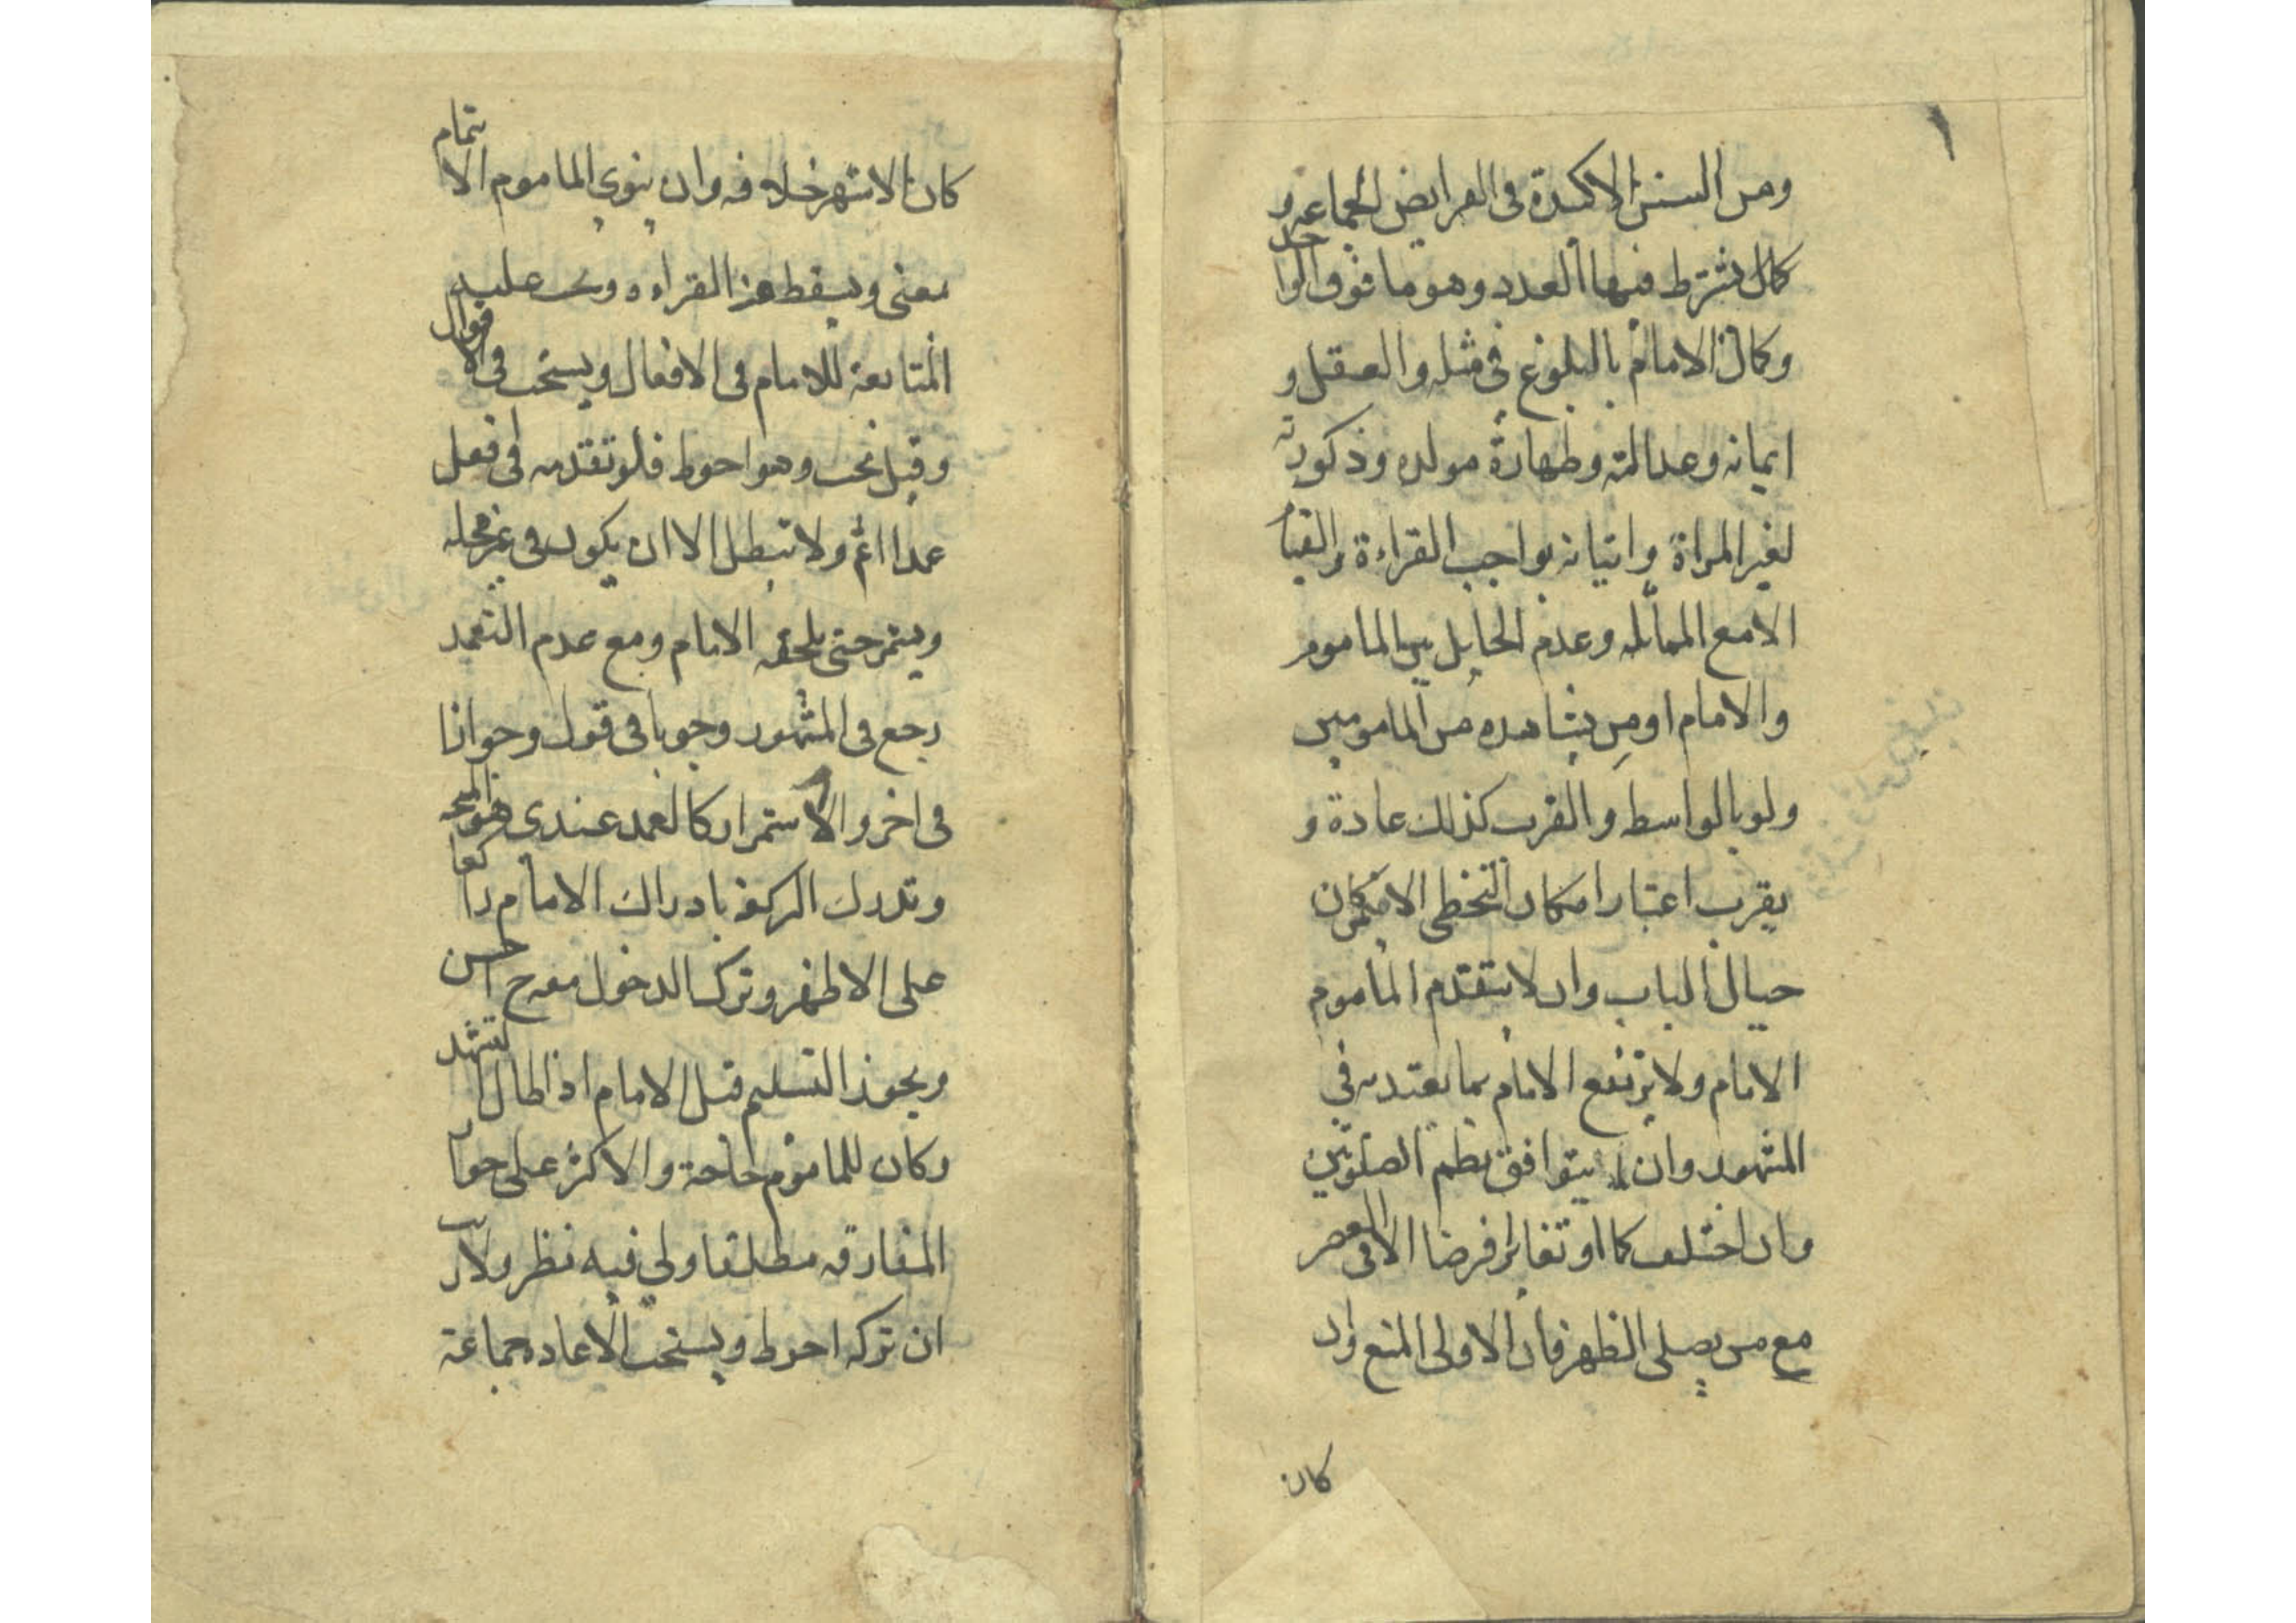 ومن السنن الاكيدة فى الفرايض الجماعه و
كمال يشترط فيها العدد وهو ما فوق الواحد
وكمال الامام بالبلوغ فى مثله والعقل و
ايمانه وعدالته وطهارة مولده وذكورته
لغير المراة واتيانه بواجب القراءة والقيام
الا مع المماثله وعدم الحايل بين الماموم
والامام او من يشاهده من المامومين
ولو بالواسطه والقرب كذلك عادة و
يقرب اعتبار امكان التخطى الا من كان
حيال الباب وان لا يتقدم الماموم
الامام ولا يرتفع الامام بما يعتد به فى
المشهور وان يتوافق نظم الصلوتين
وان اختلف كما او تغايرا فرضا الا فى العصر
مع من يصلى الظهر فان الاولى المنع وان
كان
كان الاشهر خلافه وان ينوى الماموم الايتمام
معنى ويسقط عنه القراءه ويجب عليه
المتابعة للامام فى الافعال ويستحب فى الاقوال
وقيل يجب وهو احوط فلو تقدمه فى فعل
عمدا اثم ولا تبطل الا ان يكون فى غير محله
ويستمر حتى يلحقه الامام ومع عدم التعمد
رجع فى المشهور وجوبا فى قول وجوازا
فى اخر والاستمرار كالعمد عندى هو المتجه
وتدرك الركعة بادراك الامام راكعا
على الاظهر وترك الدخول معه ح احسن
ويجوز التسليم قبل الامام اذا طال التشهد
وكان للماموم حاجة والاكثر على جواز
المفارقه مطلقا ولى فيه نظر ولا ريب
ان تركه احوط ويستحب الاعاده جماعة